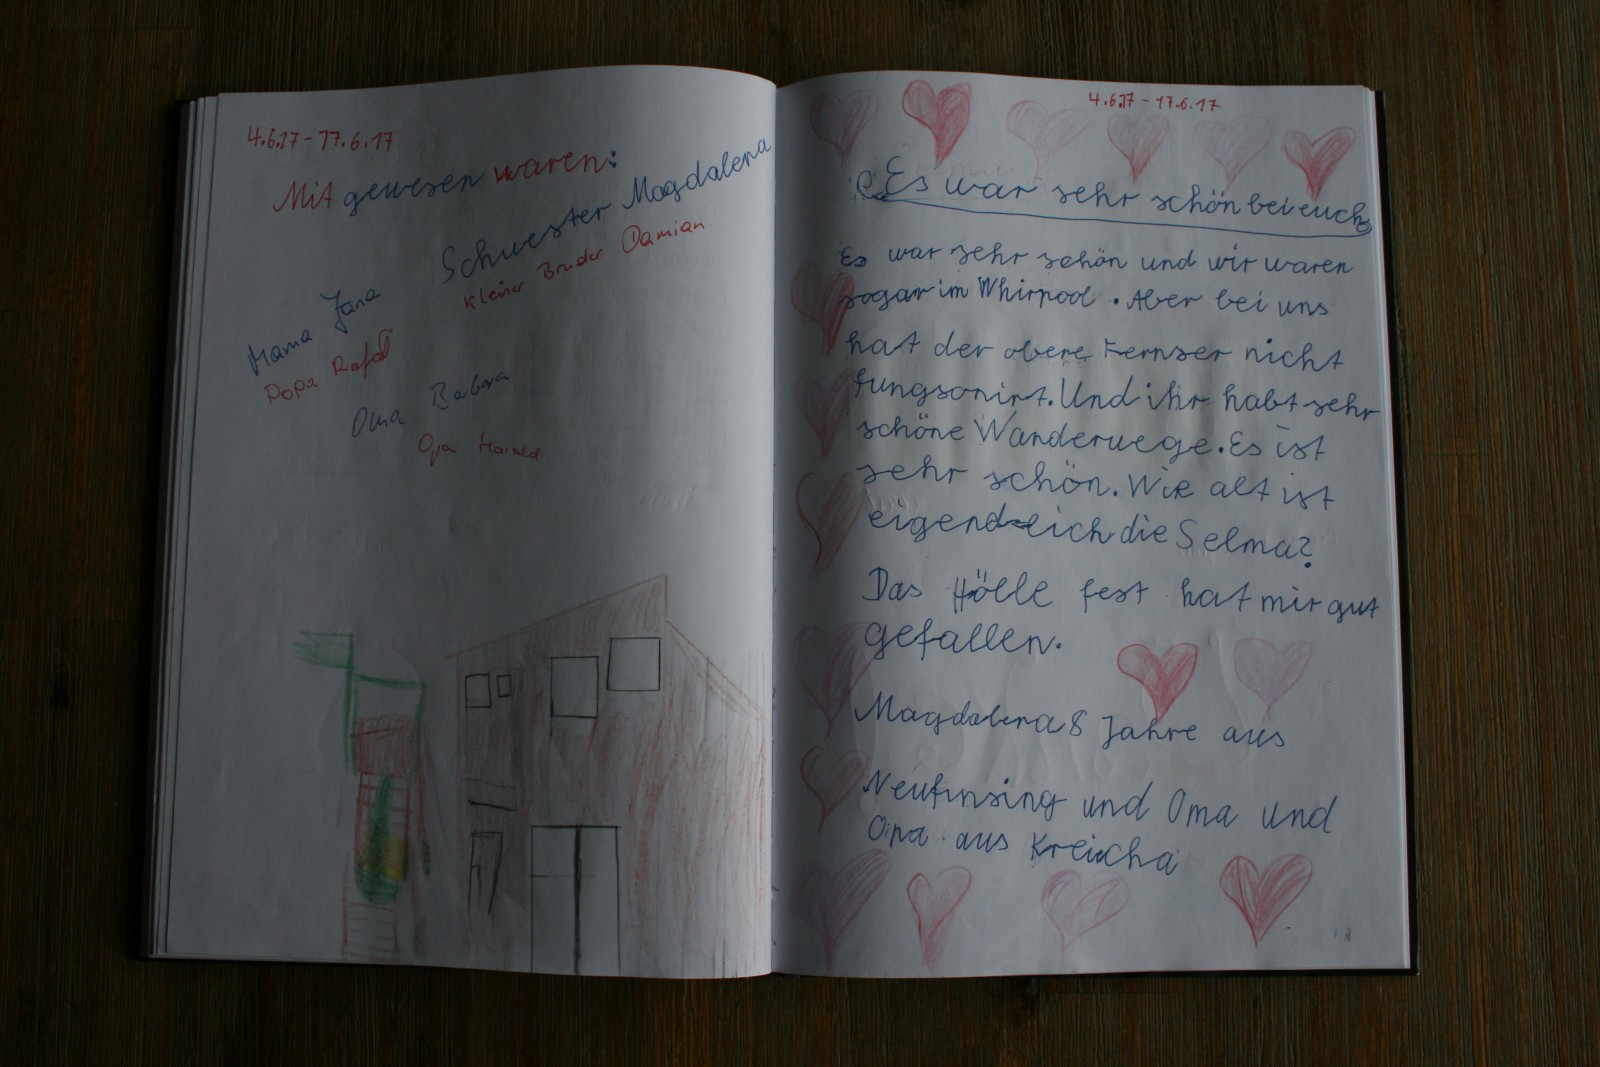 4.6.17 - 17.6.17
Mit gewesen waren:
Schwester Magdalena
kleiner Bruder Damian
Mama Jana
Papa Rafał
Oma Barbara
Opa Harald
4.6.17 - 17.6.17
Es war sehr schön bei euch
Es war sehr schön und wir waren
sogar im Whirpool. Aber bei uns
hat der obere Fernser nicht
fungsonirt. Und ihr habt sehr
schöne Wanderwege. Es ist
sehr schön. Wie alt ist
eigendlich die Selma?
Das Hölle fest hat mir gut
gefallen.
Magdalena 8 Jahre aus
Neufinsing und Oma und
Opa aus Kreischa